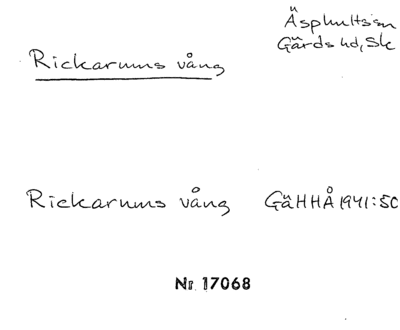 Äsphults sn
Gärds hd, Sk
Rickarums vång
Rickarums vång GäHHÅ 1941:50
Nr 17068